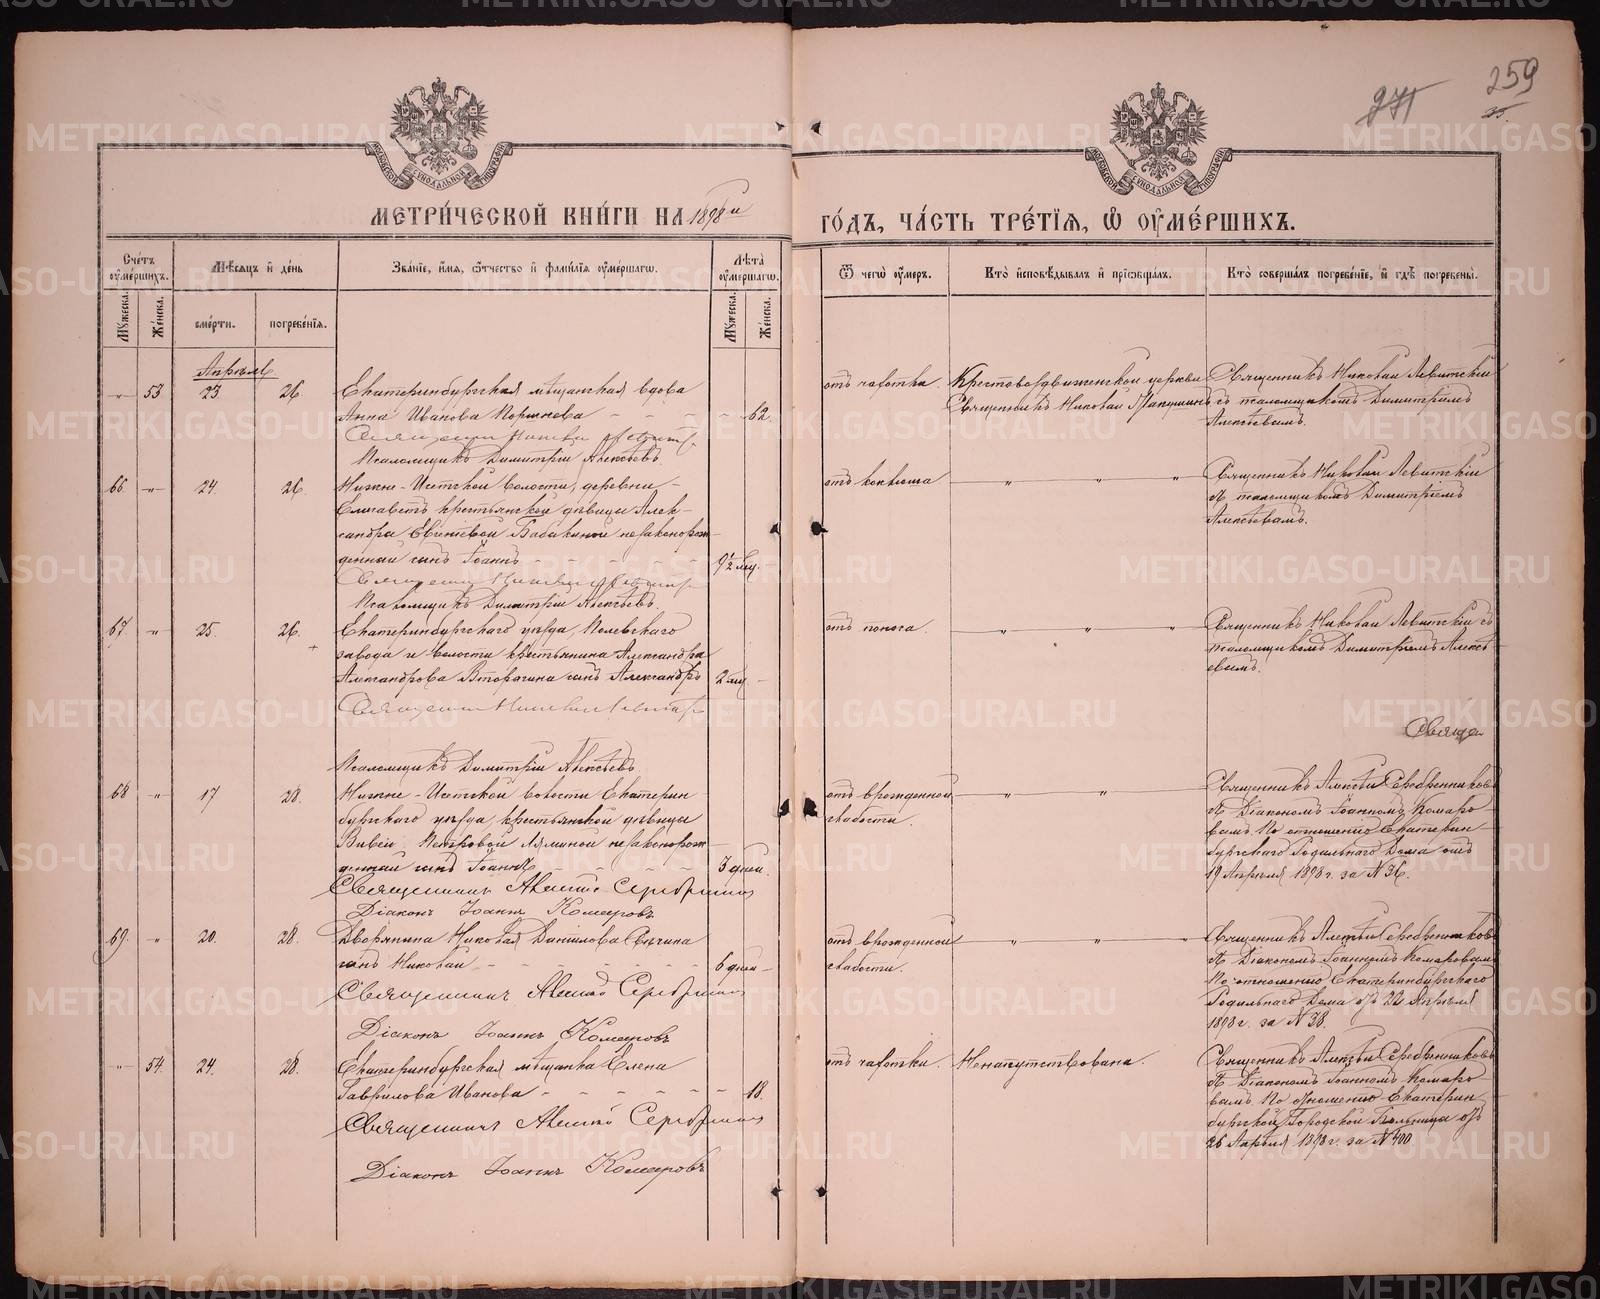 259
271
25.
МОСКОВСКОЙ СѴНОДАЛЬНОЙ ТИПОГРАФІИ
МОСКОВСКОЙ СѴНОДАЛЬНОЙ ТИПОГРАФІИ
МЕТРИ́ЧЕСКОЙ КНИ́ГИ НА 1898й ГО́ДЪ, ЧА́СТЬ ТРЕ́ТІЯ, Ѽ ОУ҆МЕ́РШИХЪ.
Сче́тъ оу҆ме́ршихъ.
Мꙋ́жеска.
Же́нска.
Мѣ́сяцъ и҆ де́нь
сме́рти.
погребе́нїя.
Зва́нїе, и҆́мя, ѻ҆́тчество и҆ фамилїя оу҆ме́ршагѡ.
Лѣ́та оу҆ме́ршагѡ.
Мꙋ́жеска.
Же́нска.
Ѿ чегѡ̀ оу҆́меръ.
Кто̀ и҆сповѣ́дывалъ и҆ прїѡбща́лъ.
Кто̀ соверша́лъ погребе́нїе, и҆ гдѣ̀ погребены̀.
Апрѣль
„ 53 23 26.
Екатеринбургская мѣщанская вдова
Анна Иванова Коринева - - - 62.
Священникъ Николай Левитскій
Псаломщикъ Димитрій Алексѣевъ.
отъ чахотки.
Крестовоздвиженской церкви
Священникъ Николай
Священникъ Николай Левитскій
съ псаломщикомъ Димитріемъ
Алексѣевымъ.
66. „ 24. 26.
Нижне-Исетской волости, деревни
Елизаветъ крестьянской дѣвицы Алек-
сандры Евгеніевой Бабкиной незаконорож-
денный сынъ Іоаннъ - - - 9½ мѣс.
Священникъ Николай Левитскій
Псаломщикъ Димитрій Алексѣевъ.
отъ коклюша
„ „ „
Священникъ Николай Левитскій
съ псаломщикомъ Димитріемъ
Алексѣевымъ.
67. „ 25. 26.
Екатеринбургскаго уѣзда, Полевскаго
завода и волости крестьянина Александра
Александрова Вторыгина сынъ Александръ 2 мѣс. -
Священникъ Николай Левитскій
Псаломщикъ Димитрій Алексѣевъ.
отъ поноса.
„ „ „
Священникъ Николай Левитскій съ
псаломщикомъ Димитріемъ Алексѣ-
евымъ.
Свяще
68 „ 17 28.
Нижне-Исетской волости Екатерин
бургскаго уѣзда, крестьянской дѣвицы
Петровой Ляминой незаконорож-
денный сынъ Іоаннъ - - - 3 дней.
Священникъ Алексій Серебренников
Діаконъ Іоаннъ Комаровъ
отъ врожденной
слабости.
„ „
Священникъ Алексѣй Серебренниковъ
съ Діакономъ Іоанномъ Комаро-
вымъ. По отношенію Екатерин-
бургскаго Родильнаго Дома отъ
19 Апрѣля 1898 г. за № 36.
69. „ 20. 28.
Дворянина Николая Данилова Свѣчина
сынъ Николай - - - 6 дней -
Священникъ Алексій Серебренников
Діаконъ Іоаннъ Комаровъ
отъ врожденной
слабости.
„ „ „
Священникъ Алексѣй Серебренниковъ
съ Діакономъ Іоанномъ Комаровым
По отношенію Екатеринбургскаго
Родильнаго Дома отъ 22 Апрѣля
1898 г. за № 38.
„ 54. 24. 28.
Екатеринбургская мѣщанка Елена
Гаврилова Иванова - - - 18.
Священникъ Алексій Серебренников
Діаконъ Іоаннъ Комаровъ
отъ чахотки.
Ненапутствована.
Священникъ Алексѣй Серебренниковъ
съ Діакономъ Іоанномъ Комаро-
вымъ. По отношенію Екатерин-
бургской Городской Больницы отъ
26 Апрѣля 1898 г. за № 400
METRIKI.GASO-URAL.RU